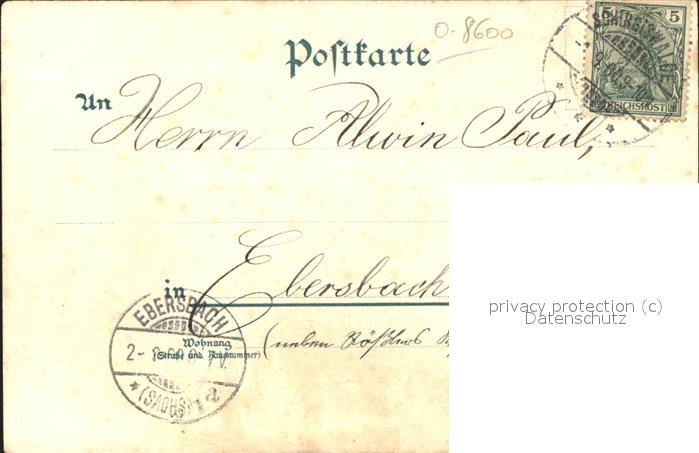 O-8600
Postkarte
5 5
REICHSPOST
An
Herrn Alwin Paul,
in Ebersbach
Wohnung
(Straße und Hausnummer)
(neben
EBERSBACH
2-
(SACHS.)
privacy protection (c)
Datenschutz